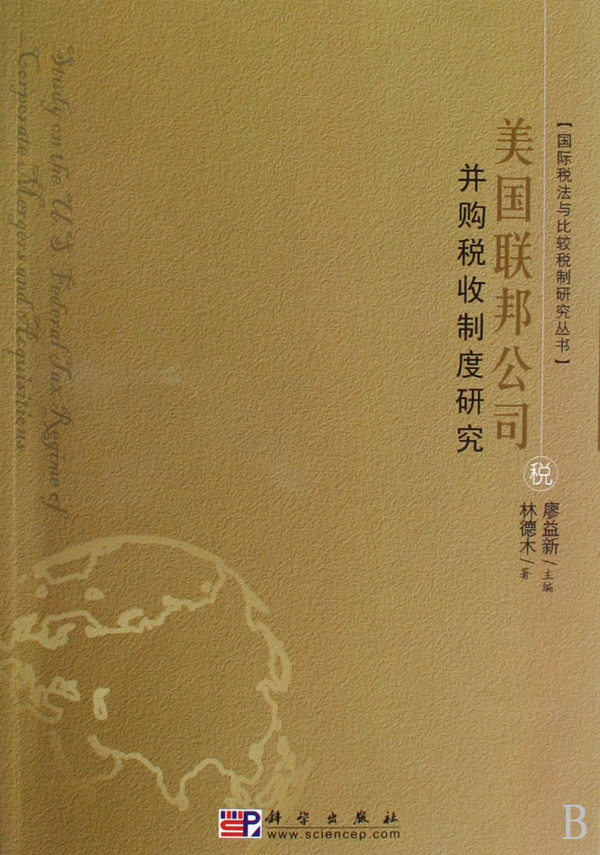 【国际税法与比较税制研究丛书】
美国联邦公司
并购税收制度研究
税
廖益新/主编
林德木/著
Study on the U.S. Federal Tax Regime of
Corporate Mergers and Acquisitions
科学出版社
www.sciencep.com
B